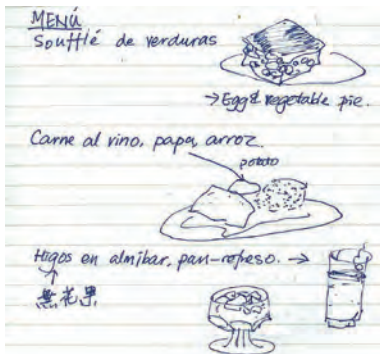 MENÚ
Soufflé de verduras
→ Egg & vegetable pie.
Carne al vino, papa, arroz.
potato
Higos en almibar, pan-refreso. →
無花果